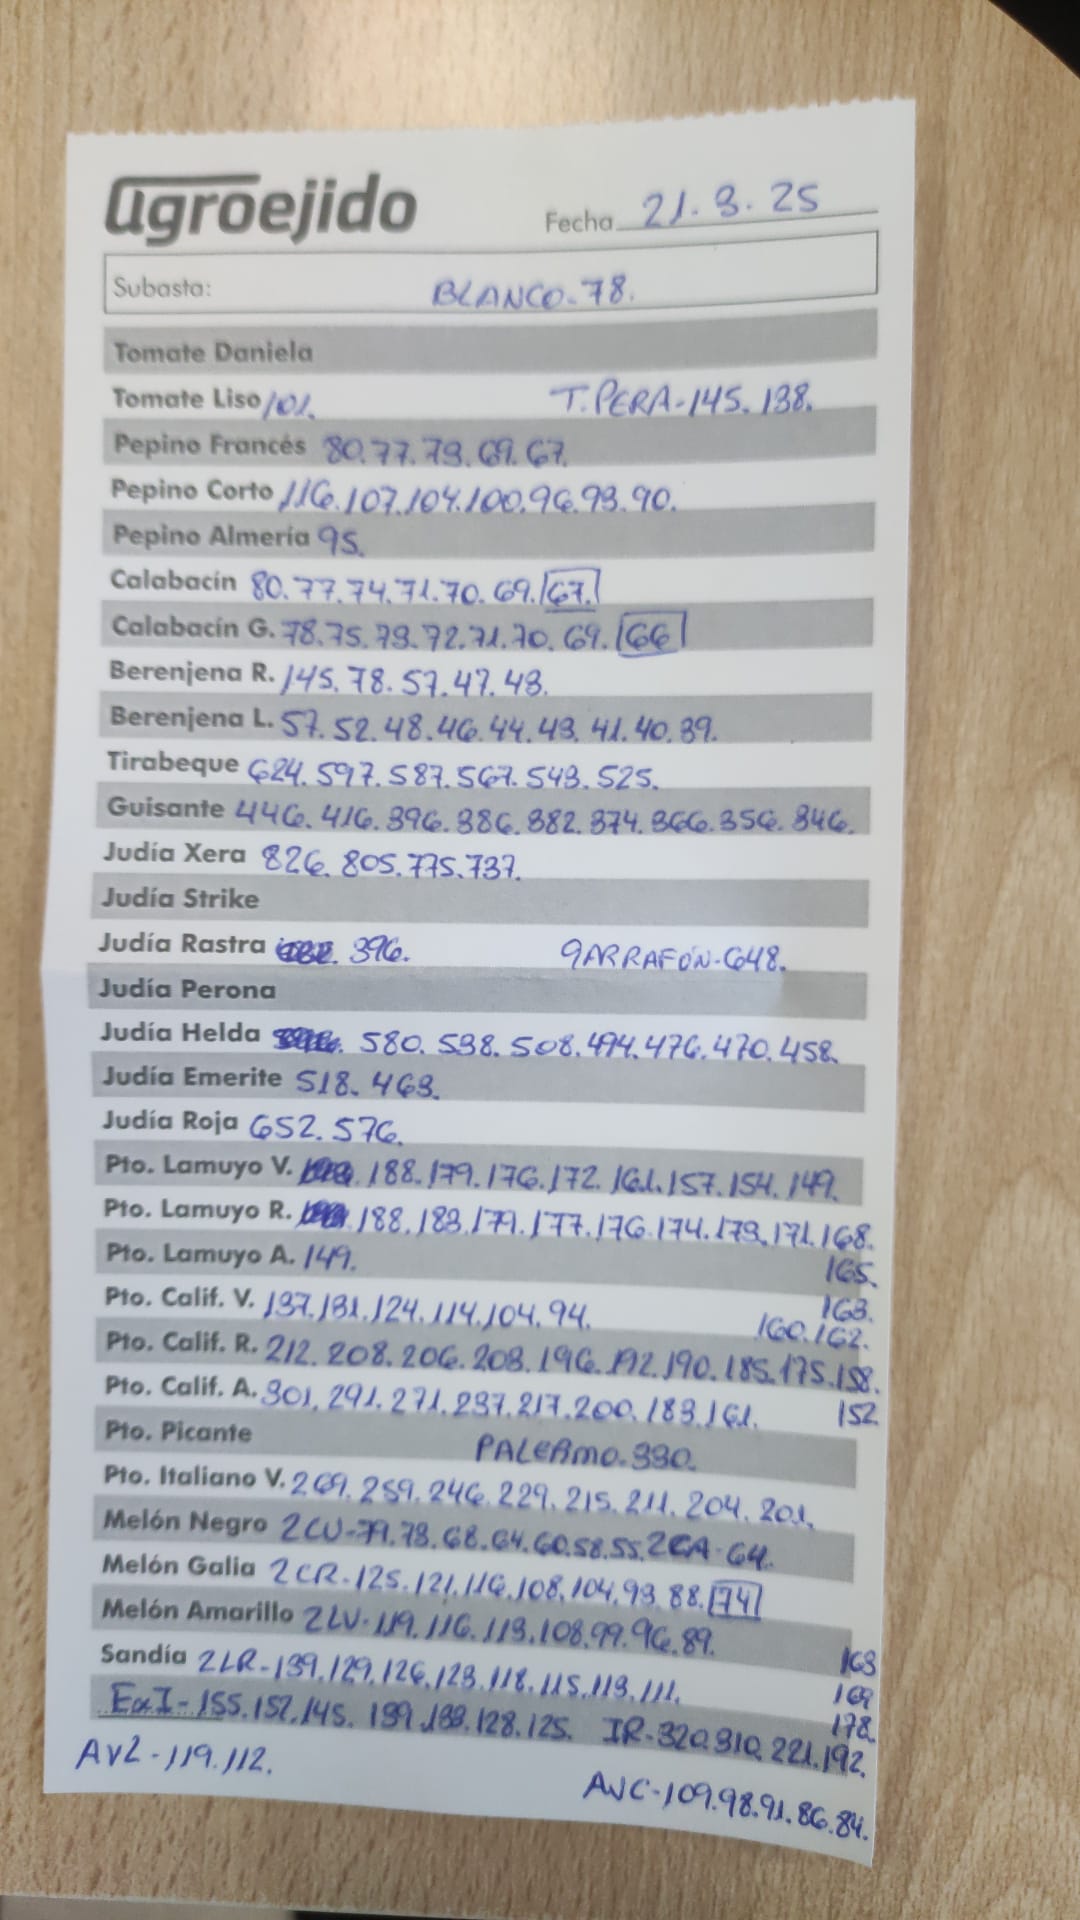 agroejido
Fecha 21.3.25
Subasta: BLANCO-78.
Tomate Daniela
Tomate Liso 101. T.PERA-145.138.
Pepino Francés 80.77.73.69.67.
Pepino Corto 116.107.104.100.96.93.90.
Pepino Almería 95.
Calabacín 80.77.74.71.70.69.67.
Calabacín G. 78.75.73.72.71.70.69.66
Berenjena R. 145.78.57.47.43.
Berenjena L. 57.52.48.46.44.43.41.40.39.
Tirabeque 624.597.587.567.543.525.
Guisante 446.416.396.386.382.374.366.356.346.
Judía Xera 826.805.775.737.
Judía Strike
Judía Rastra 396. GARRAFÓN-648.
Judía Perona
Judía Helda 580.538.508.494.476.470.458.
Judía Emerite 518.463.
Judía Roja 652.576.
Pto. Lamuyo V. 188.179.176.172.161.157.154.149.
Pto. Lamuyo R. 188.183.179.177.176.174.173.171.168.
Pto. Lamuyo A. 149. 165.
163.
Pto. Calif. V. 137.131.124.114.104.94. 160.162.
Pto. Calif. R. 212.208.206.203.196.192.190.185.175.158.
Pto. Calif. A. 301.291.271.237.217.200.183.161. 152
Pto. Picante PALERMO-330.
Pto. Italiano V. 269.259.246.229.215.211.204.201.
Melón Negro 2CU-79.73.68.64.60.58.55.2CA-64.
Melón Galia 2CR-125.121.116.108.104.93.88.74
Melón Amarillo 2LV-119.116.113.108.99.96.89.
163
Sandía 2LR-139.129.126.123.118.115.113.111.
169
178.
ExI-155.152.145.139.133.128.125. IR-320.310.221.192.
AV2-119.112.
AVC-109.98.91.86.84.